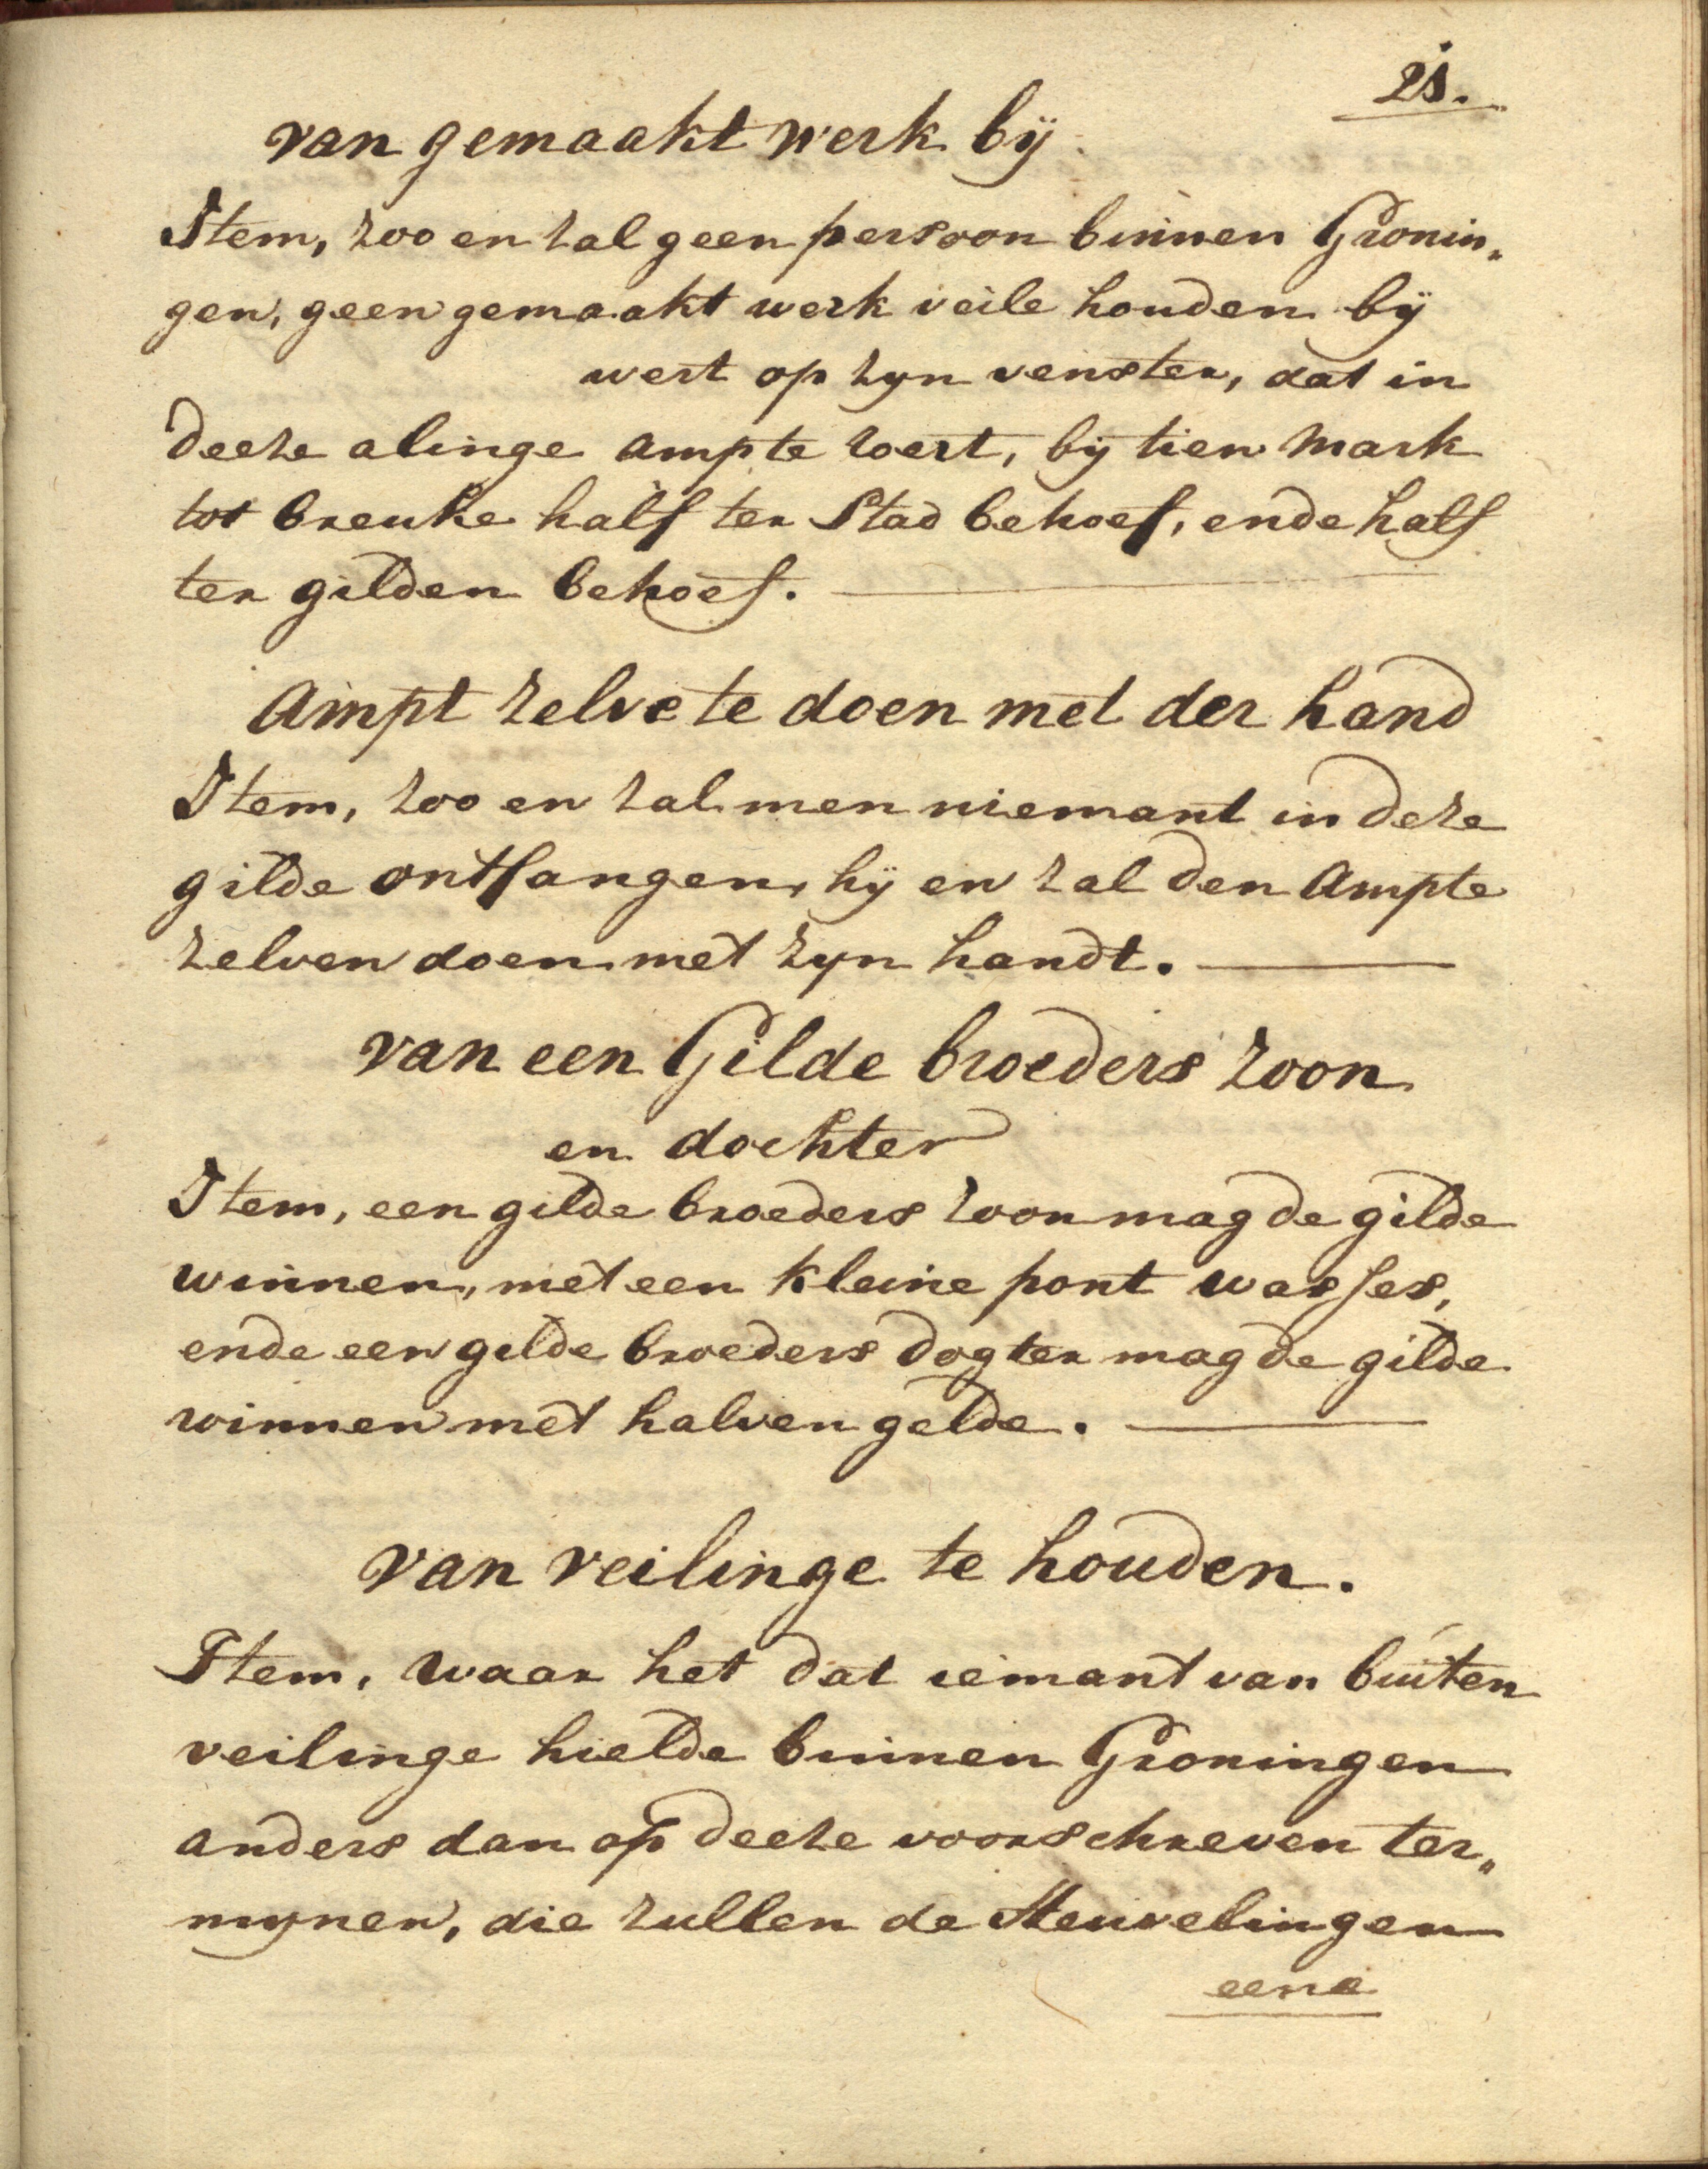 21.
van gemaakt werk bij
Item, zoo en zal geen persoon binnen Gronin„
gen, geen gemaakt werk veile houden bij
wert op zyn venster, dat in
deeze alinge ampte roert, bij tien Mark
tot breuke half ter Stad behoef, ende half
ter gilden behoef.
Ampt zelve te doen met der hand
Item, zoo en zal men niemant in deze
gilde ontfangen, hij en zal den Ampte
zelven doen met zyn handt.
van een Gilde broeders zoon
en dochter
Item, een gilde broeders zoon mag de gilde
winnen, met een kleine pont wasses,
ende een gilde broeders dogter mag de gilde
winnen met halven gelde.
van veilinge te houden.
Item, waar het dat iemant van buiten
veilinge hielde binnen Groningen
anders dan op deeze voorschreven ter„
mynen, die zullen de Heuvelingen
eene